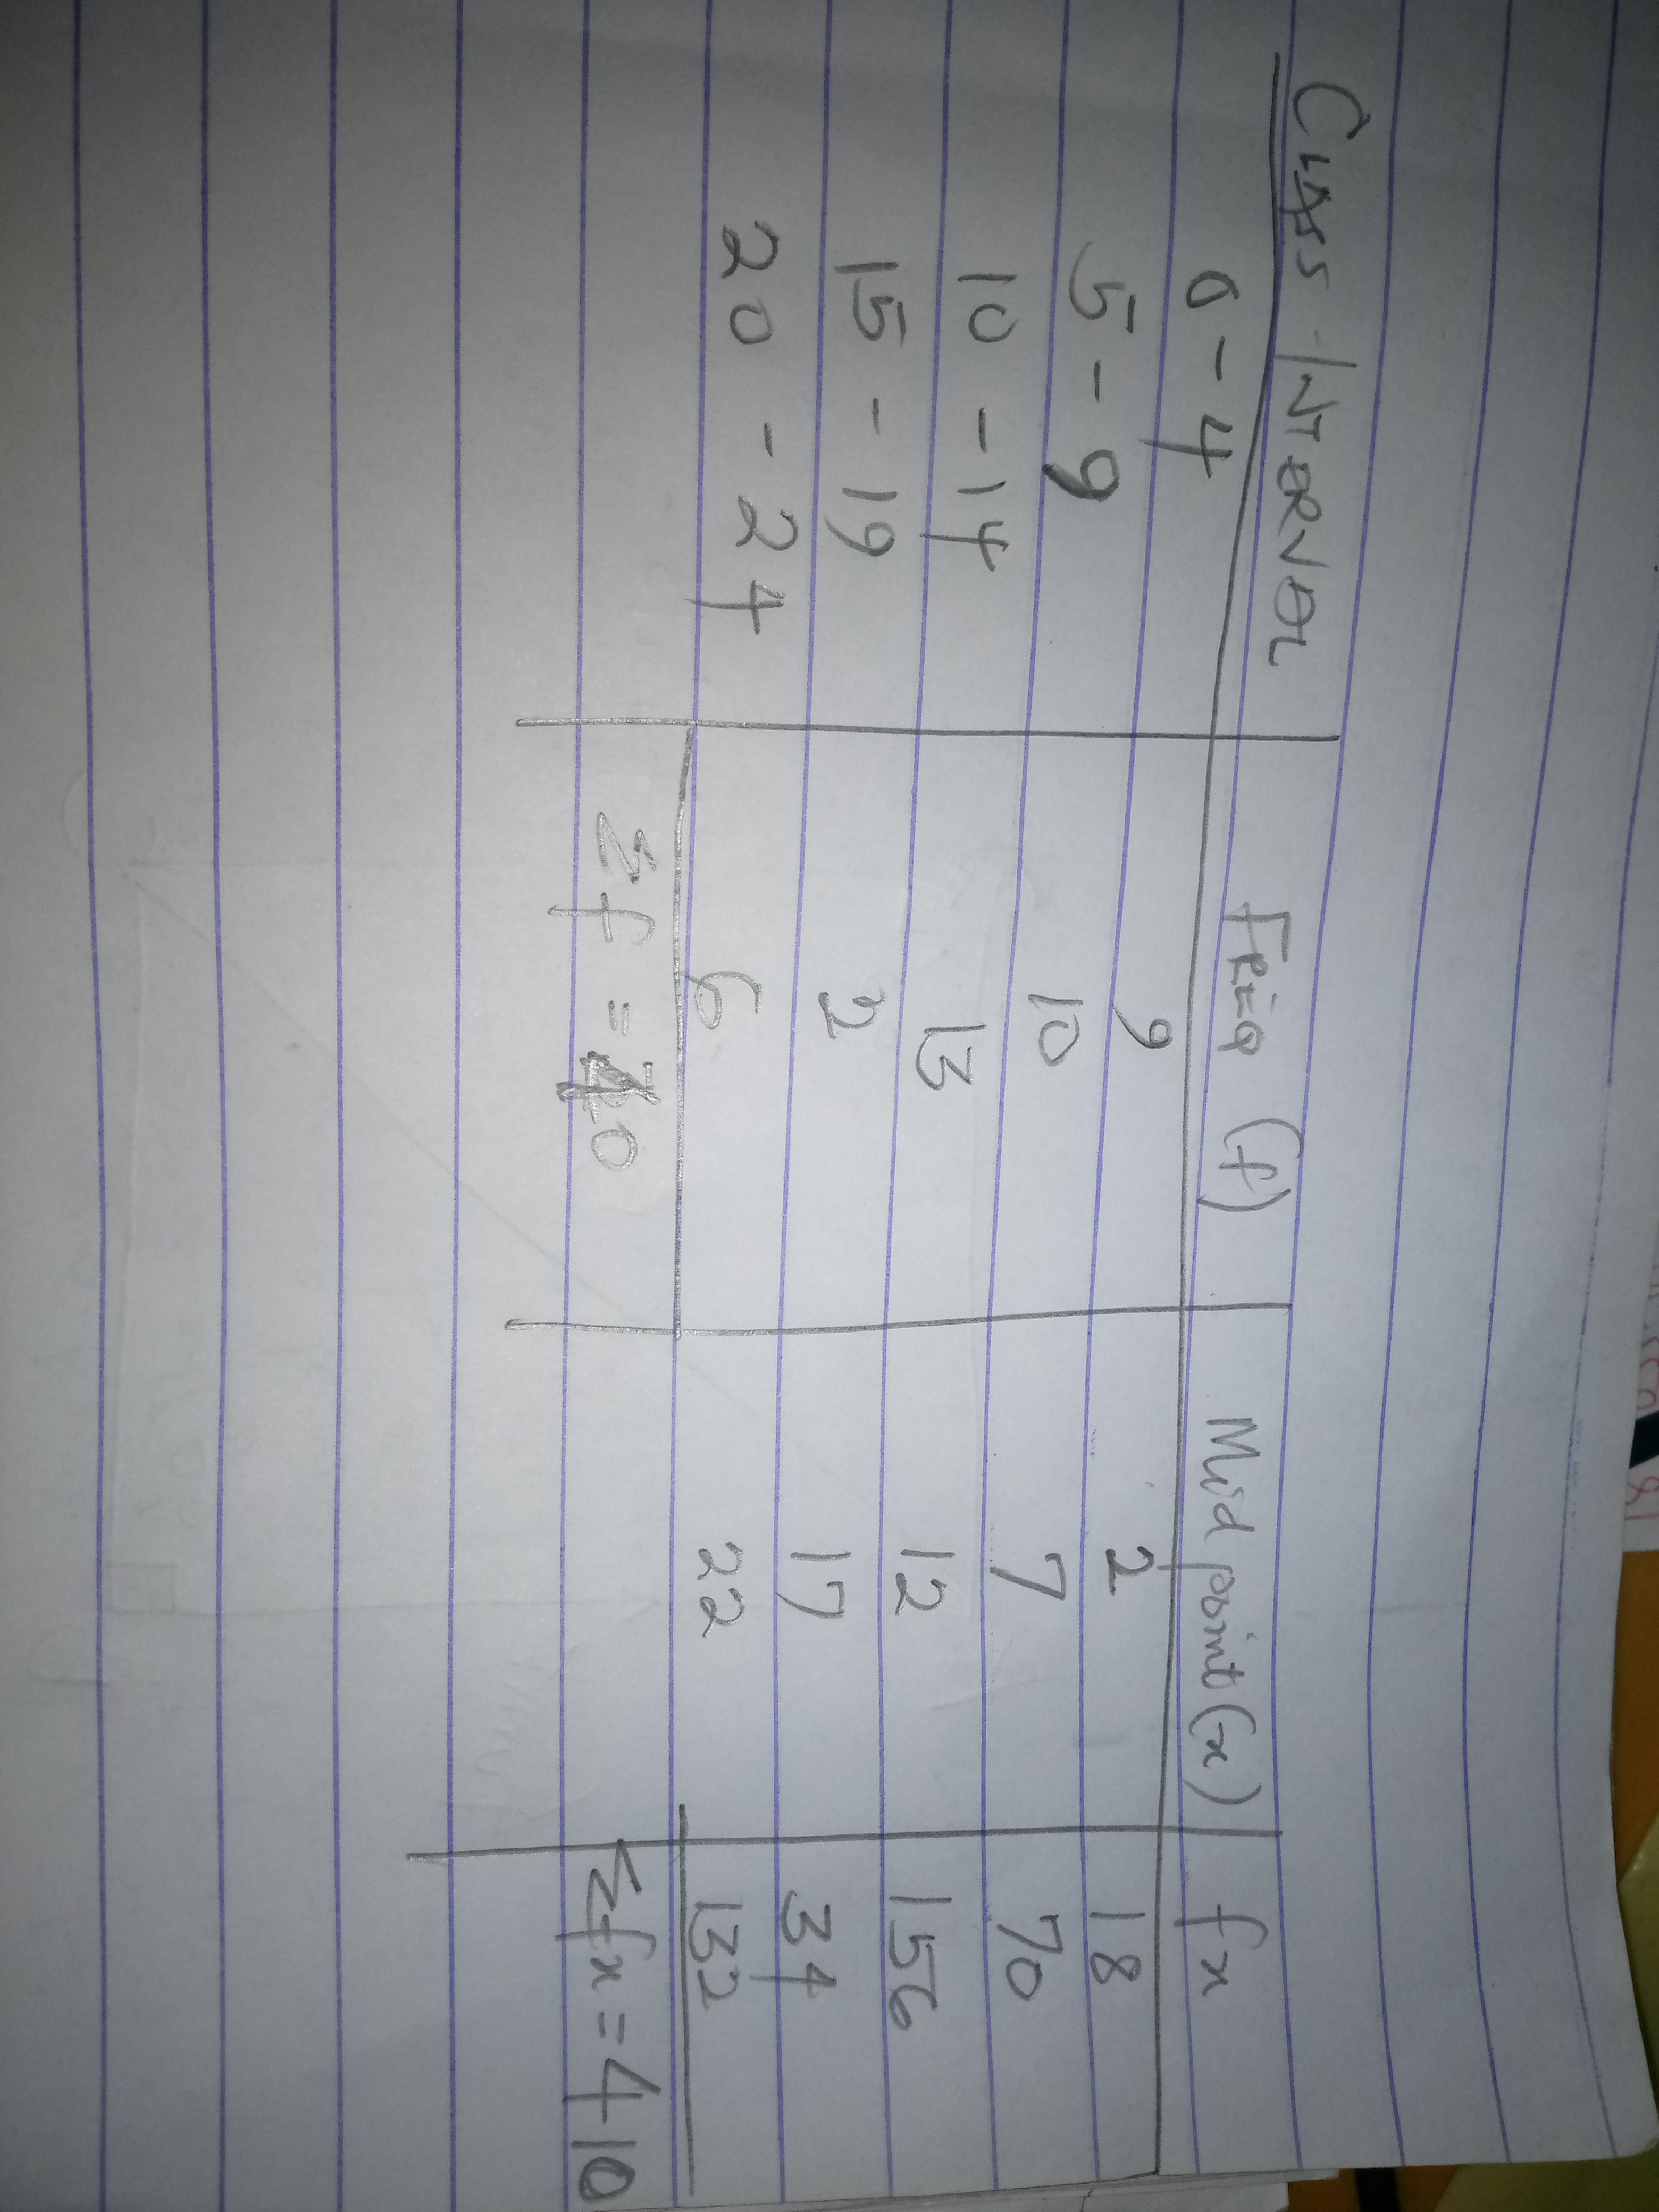 CLASS INTERVAL Freq (f) Mid point (x) fx
0 - 4 9 2 18
5 - 9 10 7 70
10 - 14 13 12 156
15 - 19 2 17 34
20 - 24 6 22 132
Σf = 40 Σfx = 410